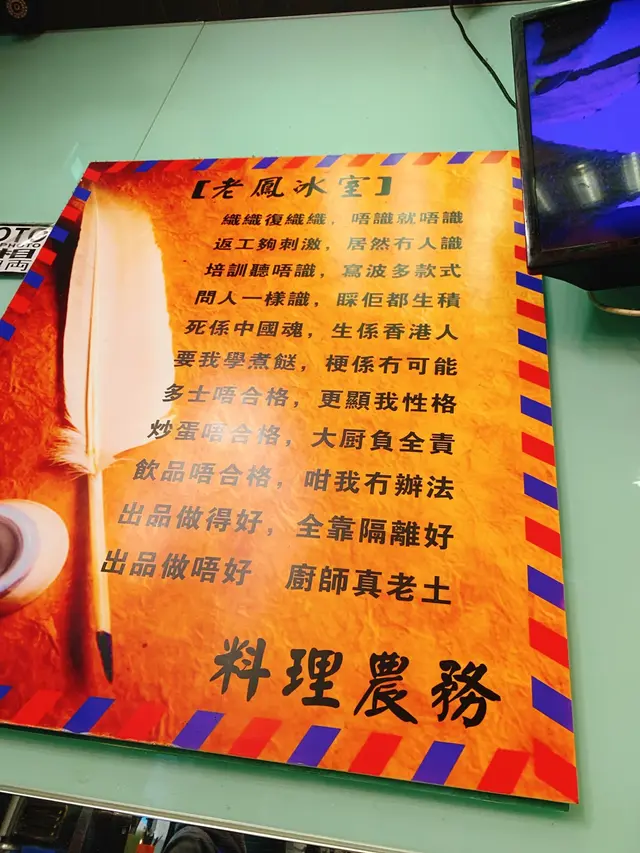 【老鳳冰室】
織織復織織，唔識就唔識
返工夠刺激，居然冇人識
培訓聽唔識，窩波多款式
問人一樣識，睬佢都生積
死係中國魂，生係香港人
要我學煮餸，梗係冇可能
多士唔合格，更顯我性格
炒蛋唔合格，大厨負全責
飲品唔合格，咁我冇辦法
出品做得好，全靠隔離好
出品做唔好 廚師真老土
料理農務
OTO
PHOTO